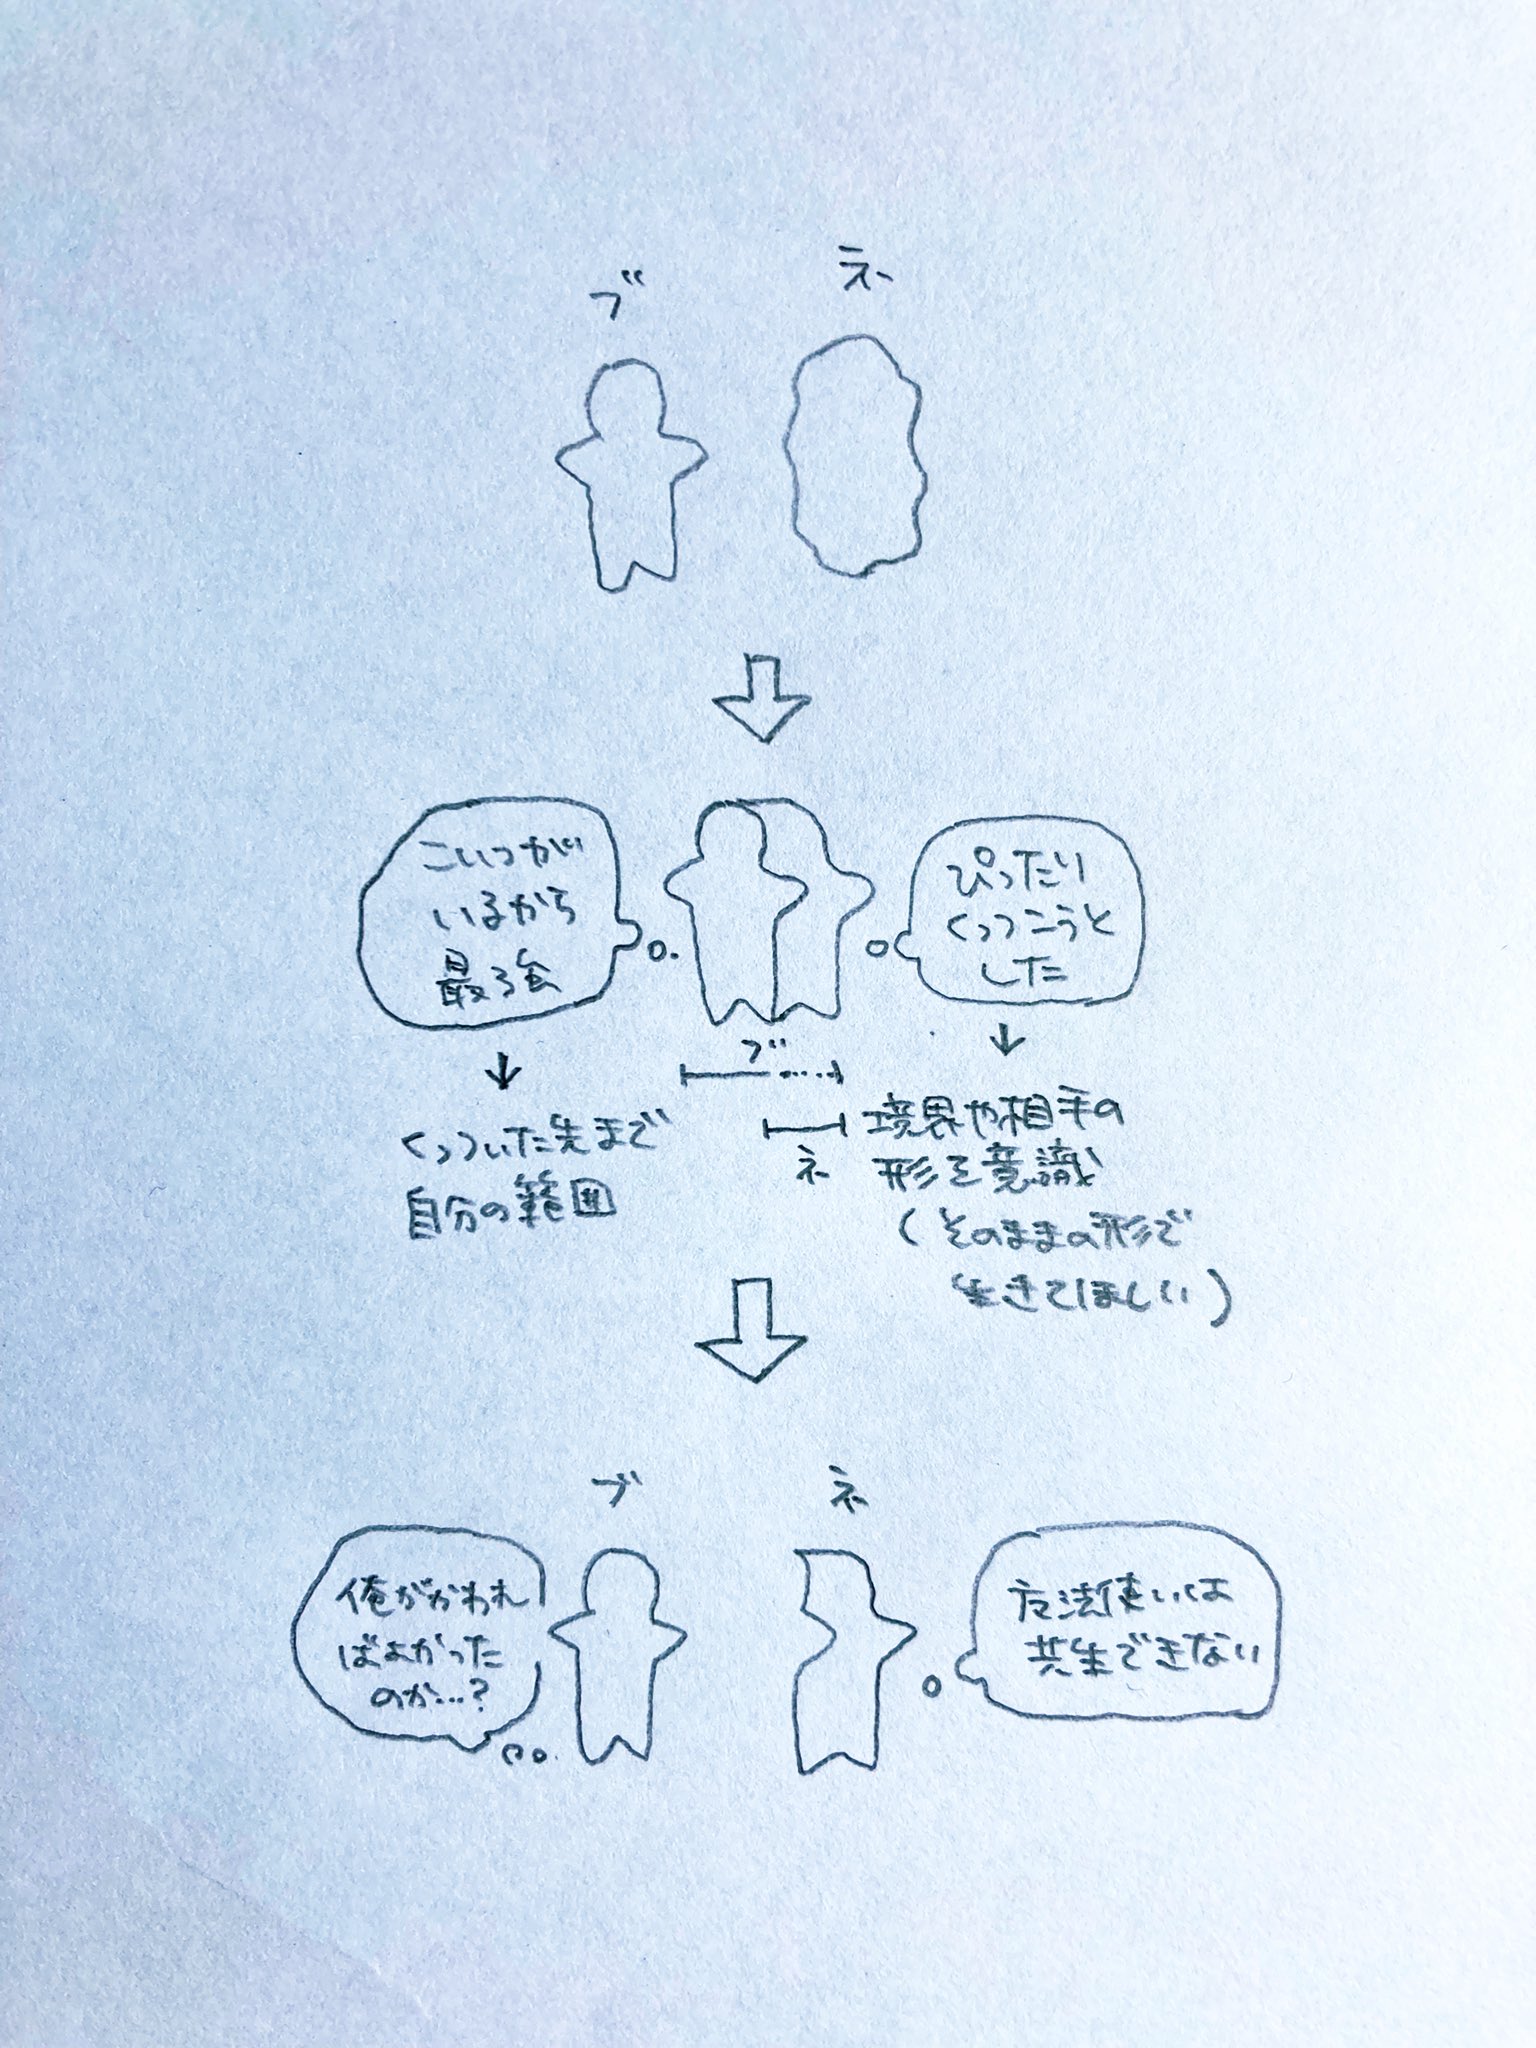 ブ
ネ
こいつが
いるから
最強
ぴったり
くっつこうと
した
ブ
ネ
くっついた先まで
自分の範囲
境界や相手の
形を意識
(そのままの形で
生きてほしい)
ブ
ネ
俺がかわれ
ばよかった
のか…?
方法使いは
共生できない